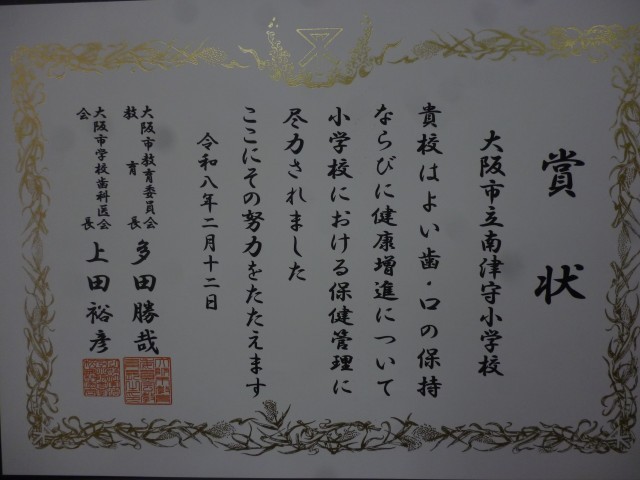 賞状
大阪市立南津守小学校
貴校はよい歯・口の保持
ならびに健康増進について
小学校における保健管理に
尽力されました
ここにその努力をたたえます
令和八年二月十二日
大阪市教育委員会
教育長 多田勝哉
大阪市学校歯科医会
会長 上田裕彦